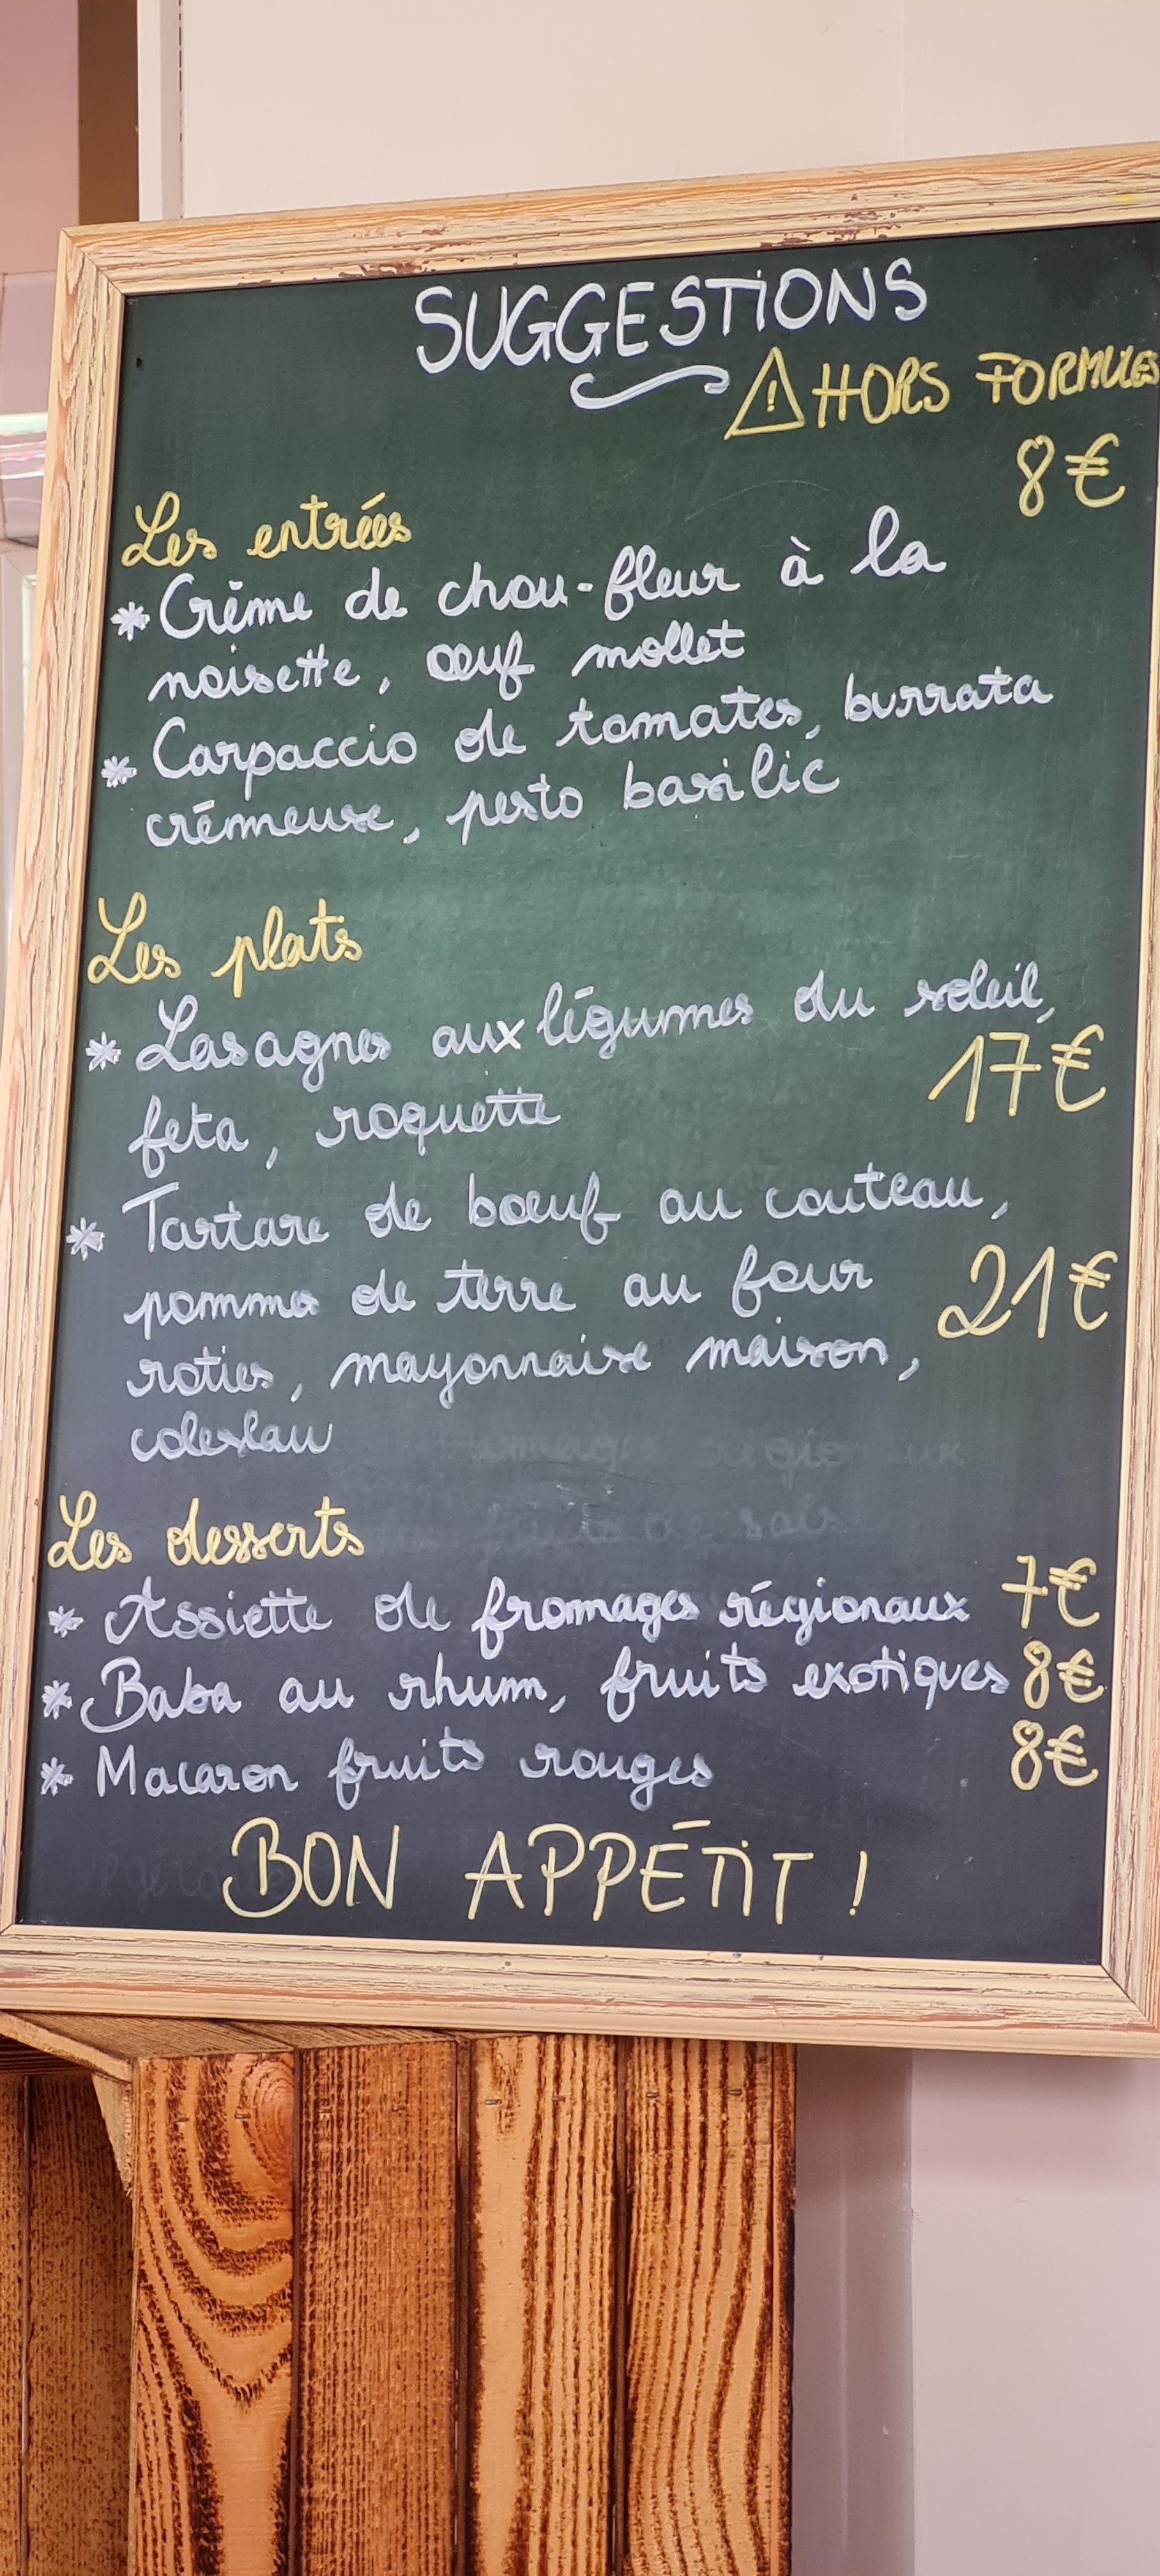 SUGGESTIONS
⚠ HORS FORMULES
8€
Les entrées
* Crème de chou-fleur à la
noisette, œuf mollet
* Carpaccio de tomates, burrata
crémeuse, pesto basilic
Les plats
* Lasagnes aux légumes du soleil,
feta, roquette 17€
* Tartare de bœuf au couteau,
pomme de terre au four 21€
roties, mayonnaise maison,
coleslaw
Les desserts
* Assiette de fromages régionaux 7€
* Baba au rhum, fruits exotiques 8€
* Macaron fruits rouges 8€
BON APPÉTIT !